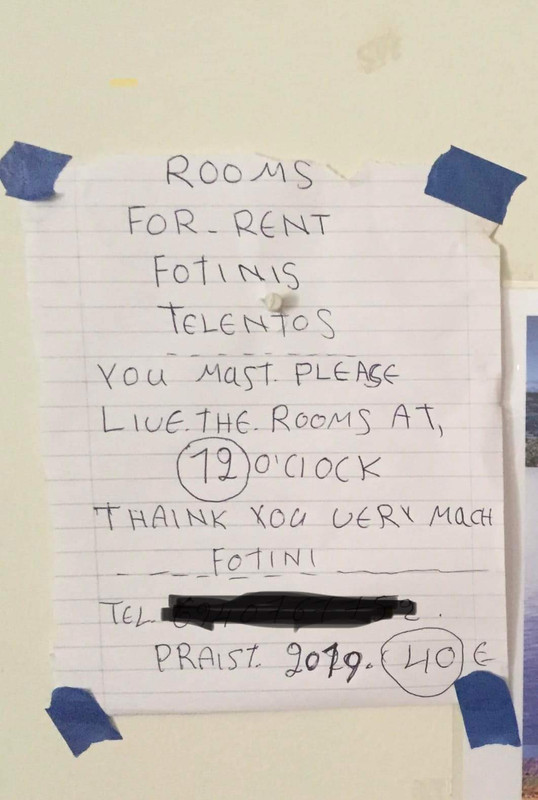 ROOMS
FOR-RENT
FOTINIS
TELENTOS
YOU MAST. PLEASE
LIVE.THE.ROOMS AT,
12 O'CLOCK
THAINK YOU VERY MACH
FOTINI
TEL.
PRAIST. 2019. 40 €